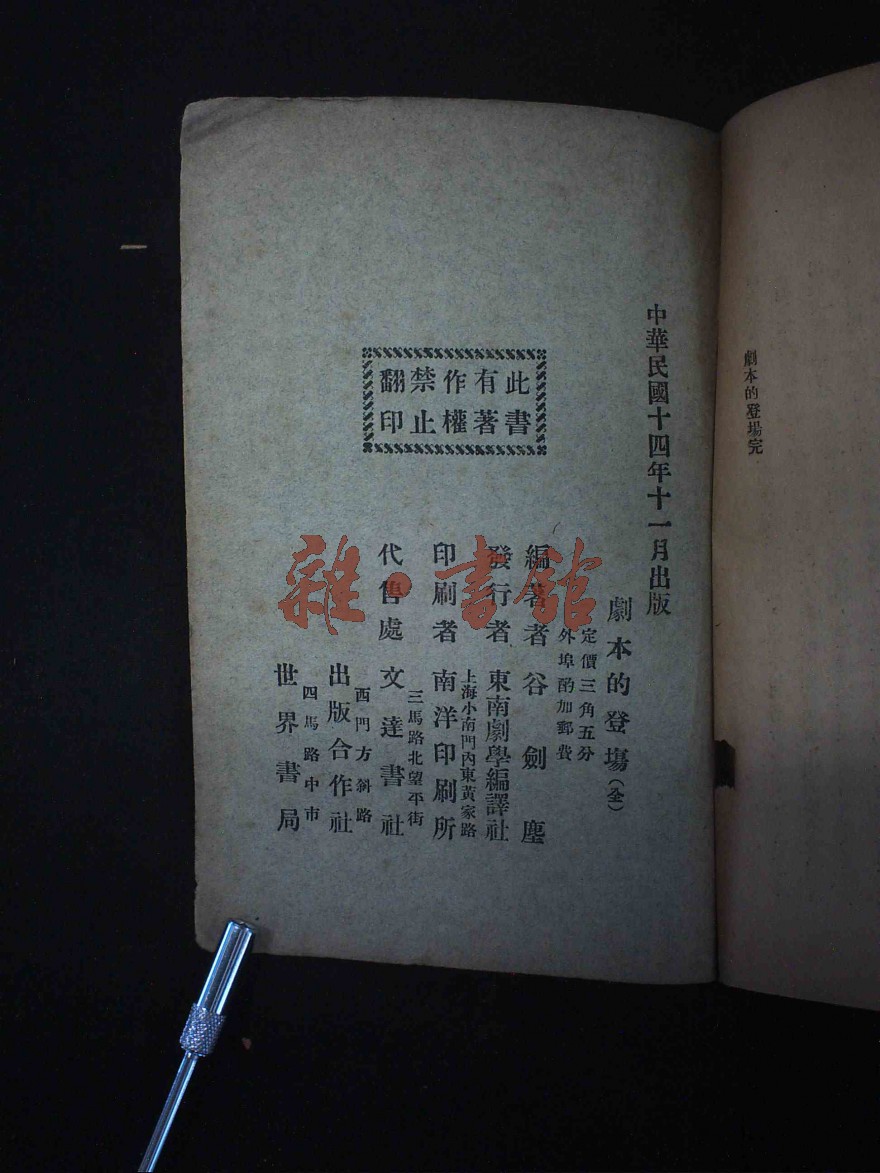 劇本的登場完
中華民國十四年十一月出版
劇本的登場（全）
定價三角五分
外埠酌加郵費
編著者 谷劍塵
發行者 東南劇學編譯社
上海小南門內東黃家路
印刷者 南洋印刷所
三馬路北望平街
代售處 文達書社
西門方斜路
出版合作社
四馬路中市
世界書局
此書
有著
作權
禁止
翻印
雜·書館